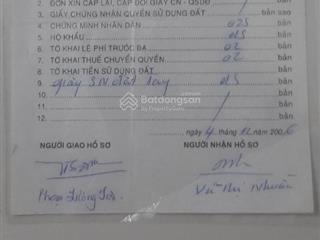 2. ĐƠN XIN CẤP LẠI, CẤP ĐỔI GIẤY CN - QSDĐ bản
3. GIẤY CHỨNG NHẬN QUYỀN SỬ DỤNG ĐẤT bản sao
4. CHỨNG MINH NHÂN DÂN 02S bản
5. HỘ KHẨU dS bản
6. TỜ KHAI LỆ PHÍ TRƯỚC BẠ 02 bản
7. TỜ KHAI THUẾ CHUYỂN QUYỀN 02 bản
8. TỜ KHAI TIỀN SỬ DỤNG ĐẤT bản
9. giấy dS bản
10. bản
Batdongsan
by PropertyGuru
ngày 4 tháng 12 năm 2006
NGƯỜI GIAO HỒ SƠ NGƯỜI NHẬN HỒ SƠ
Phạm Vũ Thị Nhuần